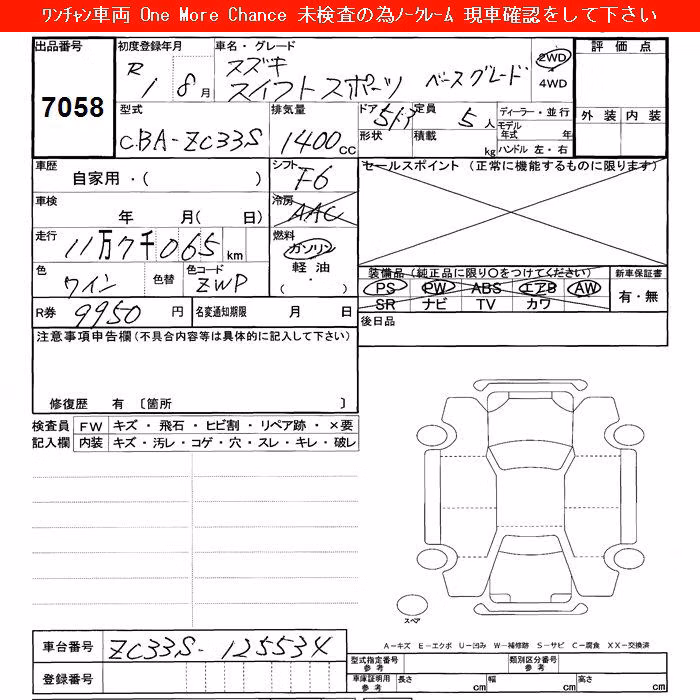 ﾜﾝﾁｬﾝ車両 One More Chance 未検査の為ﾉｰｸﾚｰﾑ 現車確認をして下さい
出品番号 初度登録年月 車名・グレード 評価点
R1 8月 スズキ 2WD
7058 スイフトスポーツ ベースグレード 4WD
型式 排気量 ドア 定員 ディーラー・並行 外装 内装
CBA-ZC33S 1400cc 5ドア 5人 モデル年式 年
形状 積載 kg ハンドル 左・右
車歴 シフト セールスポイント (正常に機能するものに限ります)
自家用・( ) F6
車検 冷房
年 月( 日) AAC
走行 燃料
11万7千065km ガソリン
色 色替 色コード 軽油 装備品(純正品に限り○をつけてください) 新車保証書
ワイン ZWP ・( ) PS PW ABS エアB AW 有・無
SR ナビ TV カワ
R券 9950円 名変通知期限 月 日 後日品
注意事項申告欄(不具合内容等は具体的に記入して下さい)
修復歴 有 〔箇所 〕
検査員 FW キズ・飛石・ヒビ割・リペア跡・×要
記入欄 内装 キズ・汚レ・コゲ・穴・スレ・キレ・破レ
スペア
A-キズ E-エクボ U-凹み W-補修跡 S-サビ C-腐食 XX-交換済
車台番号 ZC33S-125534 型式指定番号 参考 類別区分番号 参考
登録番号 車庫証明用 参考 長さ cm 幅 cm 高さ cm